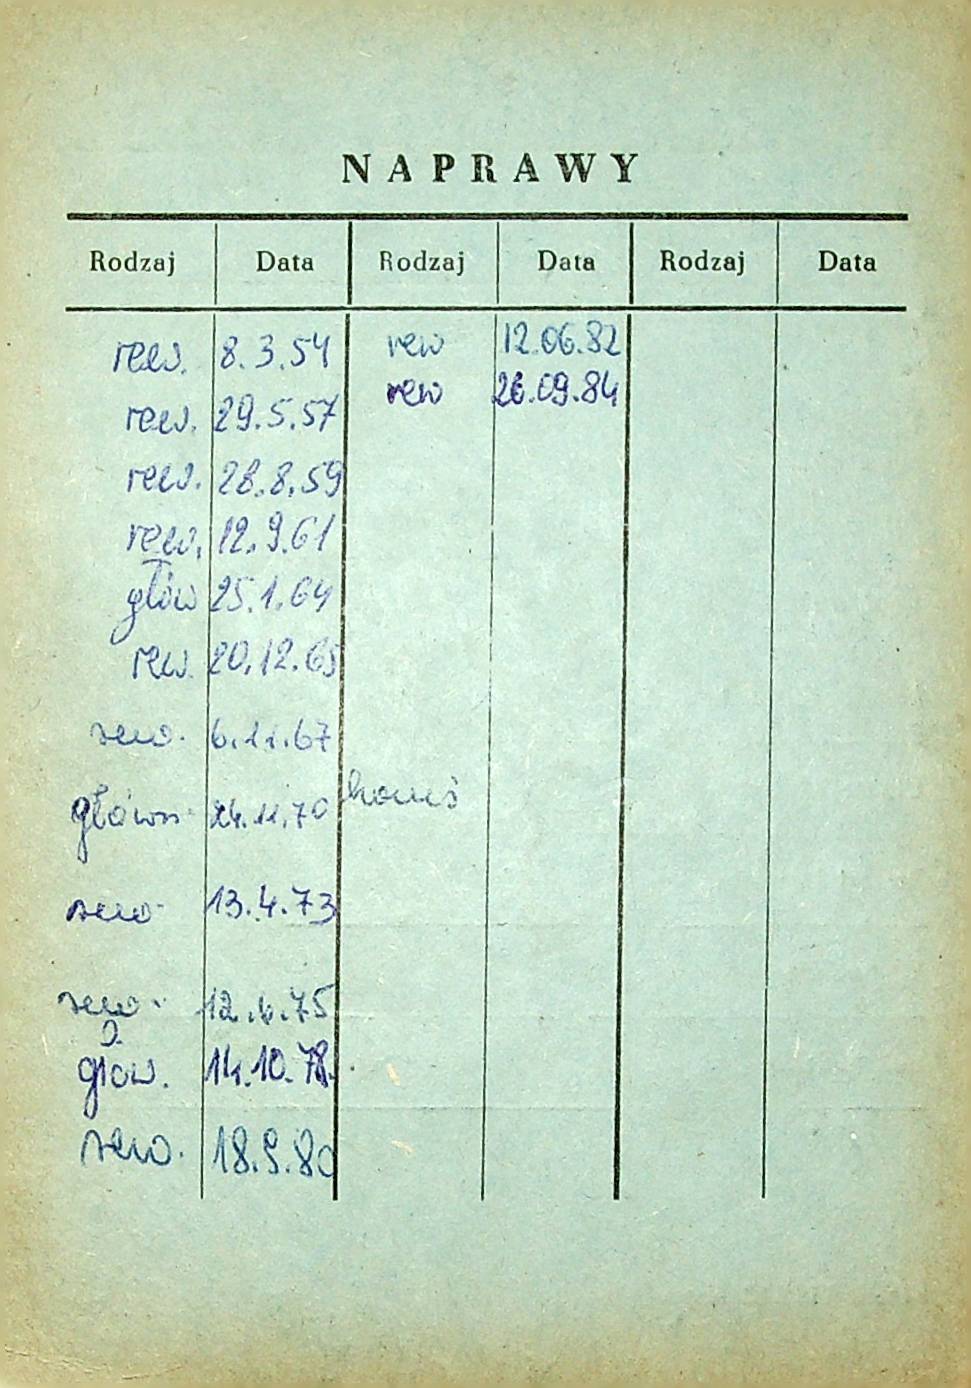 NAPRAWY
Rodzaj Data Rodzaj Data Rodzaj Data
rew. 8.3.54 rew 12.06.82
rew. 29.5.57 rew 26.09.84
rew. 28.8.59
rew. 12.9.61
głów 25.1.64
rew. 20.12.65
rew. 6.11.67
główn 24.11.70
rew. 13.4.73
rew. 12.6.75
głów. 14.10.78.
rew. 18.9.80